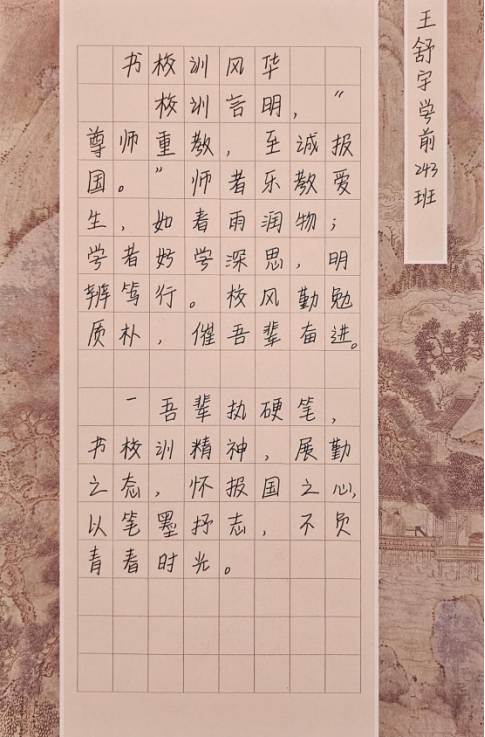 书校训风华
校训言明，“
尊师重教，至诚报
国。”师者乐教爱
生，如春雨润物；
学者好学深思，明
辨笃行。校风勤勉
质朴，催吾辈奋进。
一吾辈执硬笔，
书校训精神，展勤
之态，怀报国之心，
以笔墨抒志，不负
青春时光。
王舒宇学前243班